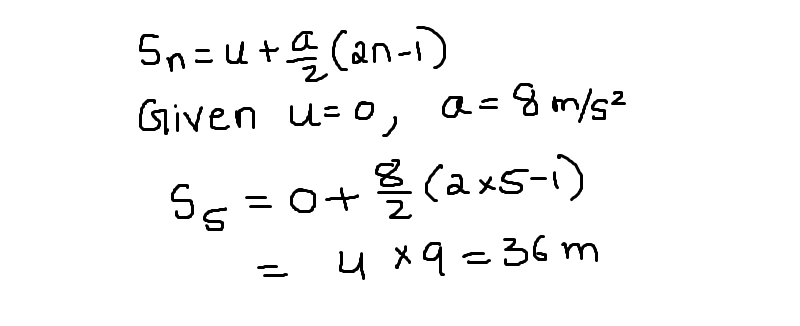 Sn = u + a/2 (2n-1)
Given u = 0, a = 8 m/s²
S5 = 0 + 8/2 (2 × 5-1)
= 4 × 9 = 36 m